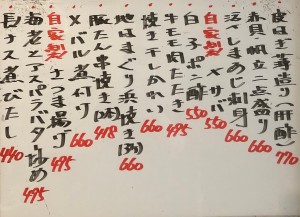 皮はぎ薄造り(肝酢) 770
赤貝帆立二点盛り 660
活〆しまあじ刺身 660
自家製〆サバ 550
牛モモ肉たたき ポン酢 550
焼き干しかれい 660
地はまぐり浜焼き(3ヶ) 660
豚たん串焼き(2本) 418
メバル煮付け 660
自家製さつま揚げ 495
海老とアスパラバター炒め 495
長ナス煮びたし 440